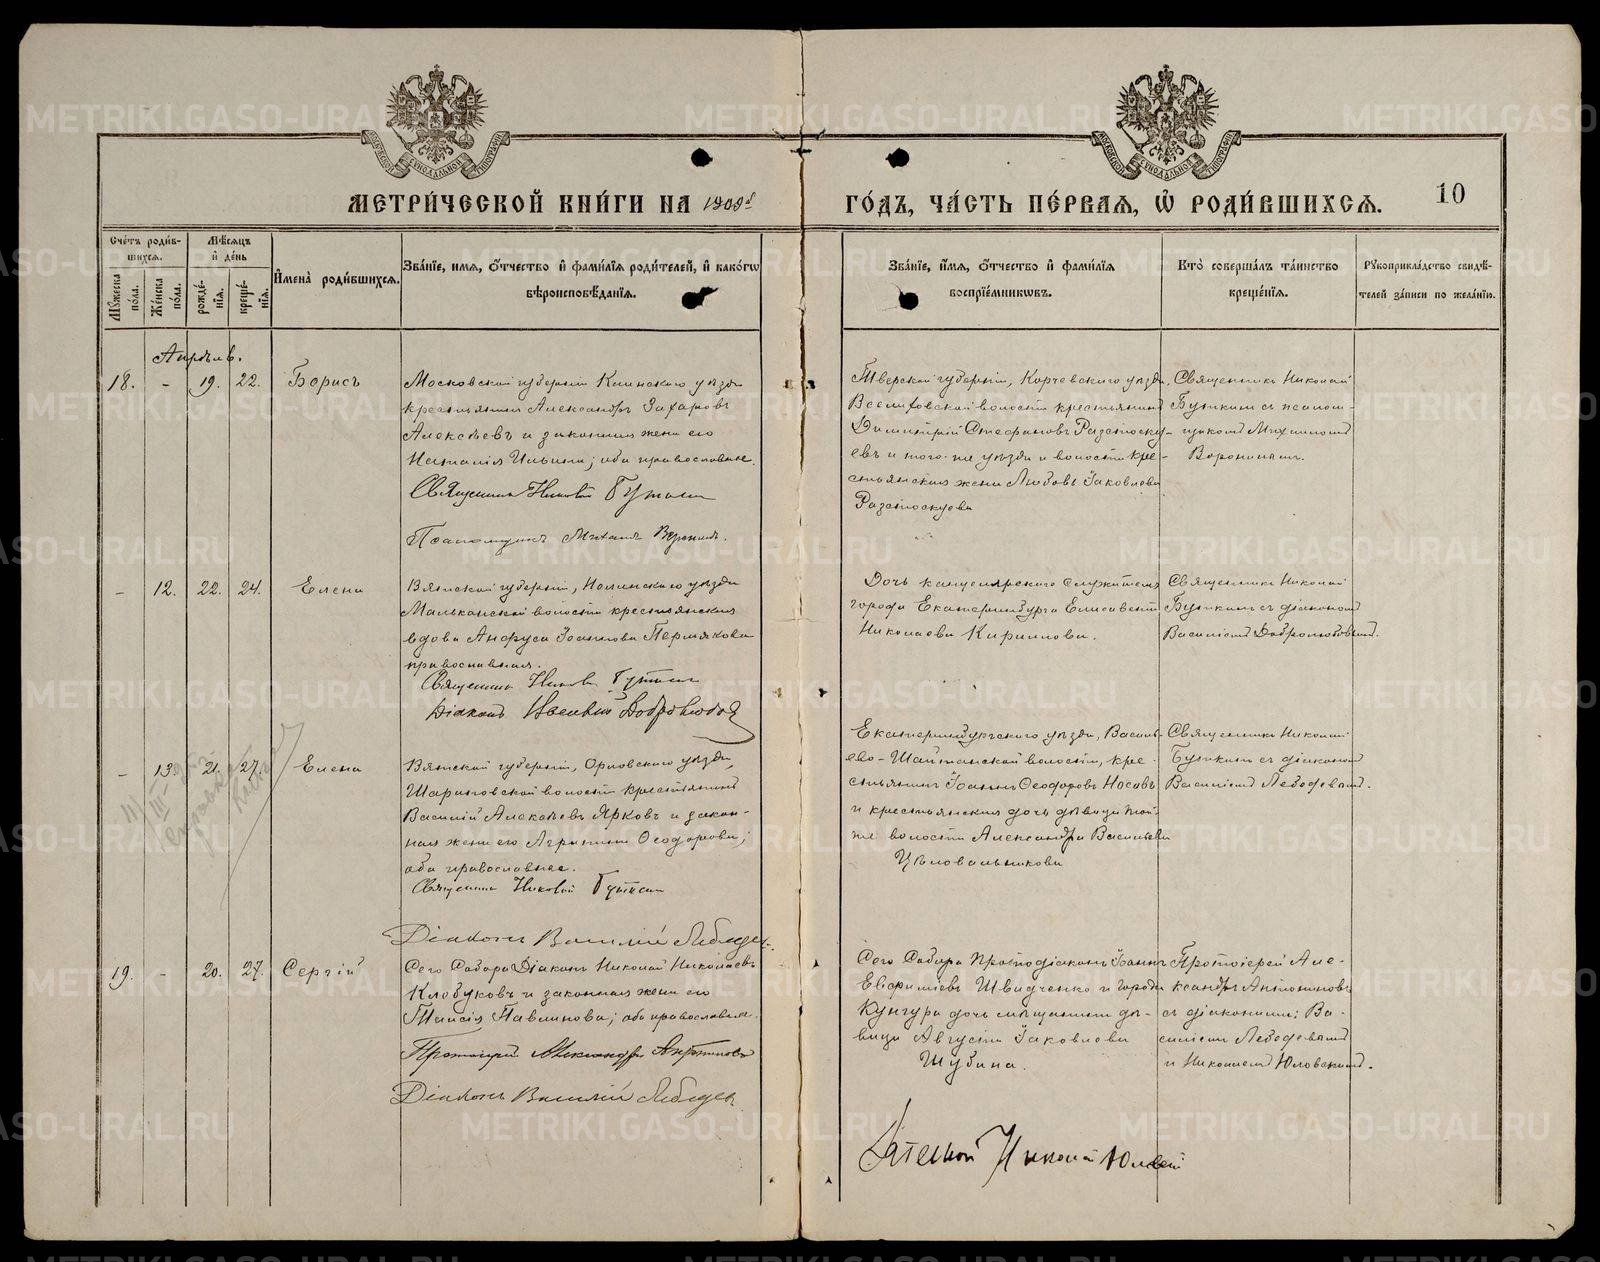 МЕТРИ́ЧЕСКОЙ КНИ́ГИ НА 1909й
ГО́ДЪ, ЧА́СТЬ ПЕ́РВАЯ, Ѽ РОДИ́ВШИХСЯ.
10
Сче́тъ роди́вшихся.
Мѣ́сяцъ и де́нь
Му́жеска по́ла.
Же́нска по́ла.
рожде́нїя.
креще́нїя.
И҆мена̀ роди́вшихся.
Зва́нїе, имя, ѻ҆́тчество и҆ фами́лїя роди́телей, и҆ како́гѡ вѣроисповѣ́данїя.
Зва́нїе, и҆́мя, ѻ҆́тчество и҆ фами́лїя воспрїе́мникѡвъ.
Кто̀ соверша́лъ та́инство креще́нїя.
Рꙋкоприкла́дство свидѣ́телей за́писи по жела́нїю.
Апрѣль.
18. - 19. 22. Борисъ
Московской губернiи Клинскаго уѣзда
крестьянинъ Александръ Захаровъ
Алексѣевъ и законная жена его
Наталiя Ильина; оба православные.
Священникъ Николай Буткинъ
Псаломщикъ Михаилъ Воронинъ.
Тверской губернiи, Корчевского уѣзда,
волости крестьянинъ
Димитрiй Стефановъ
евъ и того-же уѣзда и волости кре-
стьянская жена Любовь Iаковлева
Священникъ Николай
Буткинъ съ псалом-
щикомъ Михаиломъ
Воронинымъ.
- 12. 22. 24. Елена
Вятской губернiи, Нолинскаго уѣзда
волости крестьянская
вдова Анфуса Iоаннова Пермякова
православная.
Священникъ Николай Буткинъ
Дiаконъ Василiй Добролюбовъ
Дочь канцелярскаго служителя
города Екатеринбурга Елисавета
Николаева Кириллова.
Священникъ Николай
Буткинъ съ дiакономъ
Василiемъ Добролюбовымъ.
- 13. 21. 27. Елена
Вятской губернiи, Орловскаго уѣзда,
волости крестьянинъ
Василiй Алексѣевъ Ярковъ и закон-
ная жена его Агрипина Ѳеодорова;
оба православные.
Священникъ Николай Буткинъ
Дiаконъ Василiй Лебедевъ.
Екатеринбургскаго уѣзда, Василь-
ево-Шайтанской волости, кре-
стьянинъ Iоаннъ Ѳеодоровъ Носовъ
и крестьянская дочь дѣвица той-
же волости Александра Васильева
Цѣловальникова
Священникъ Николай
Буткинъ съ дiакономъ
Василiемъ Лебедевымъ.
19. - 20. 27. Сергiй
Сего Собора Дiаконъ Николай Николаевъ
Клобуковъ и законная жена его
Таисiя Павлинова; оба православные.
Протоiерей Александръ Антониновъ
Дiаконъ Василiй Лебедевъ
Сего Собора Протодiаконъ Iоаннъ
Евфимiевъ Швидченко и города
Кунгура дочь мѣщанина дѣ-
вица Августа Iаковлева
Шубина.
Протоiерей Але-
ксандръ Антониновъ
съ дiаконами: Ва-
силiемъ Лебедевымъ
и Николаемъ Юловскимъ.
Николай Юловскiй
METRIKI.GASO-URAL.RU